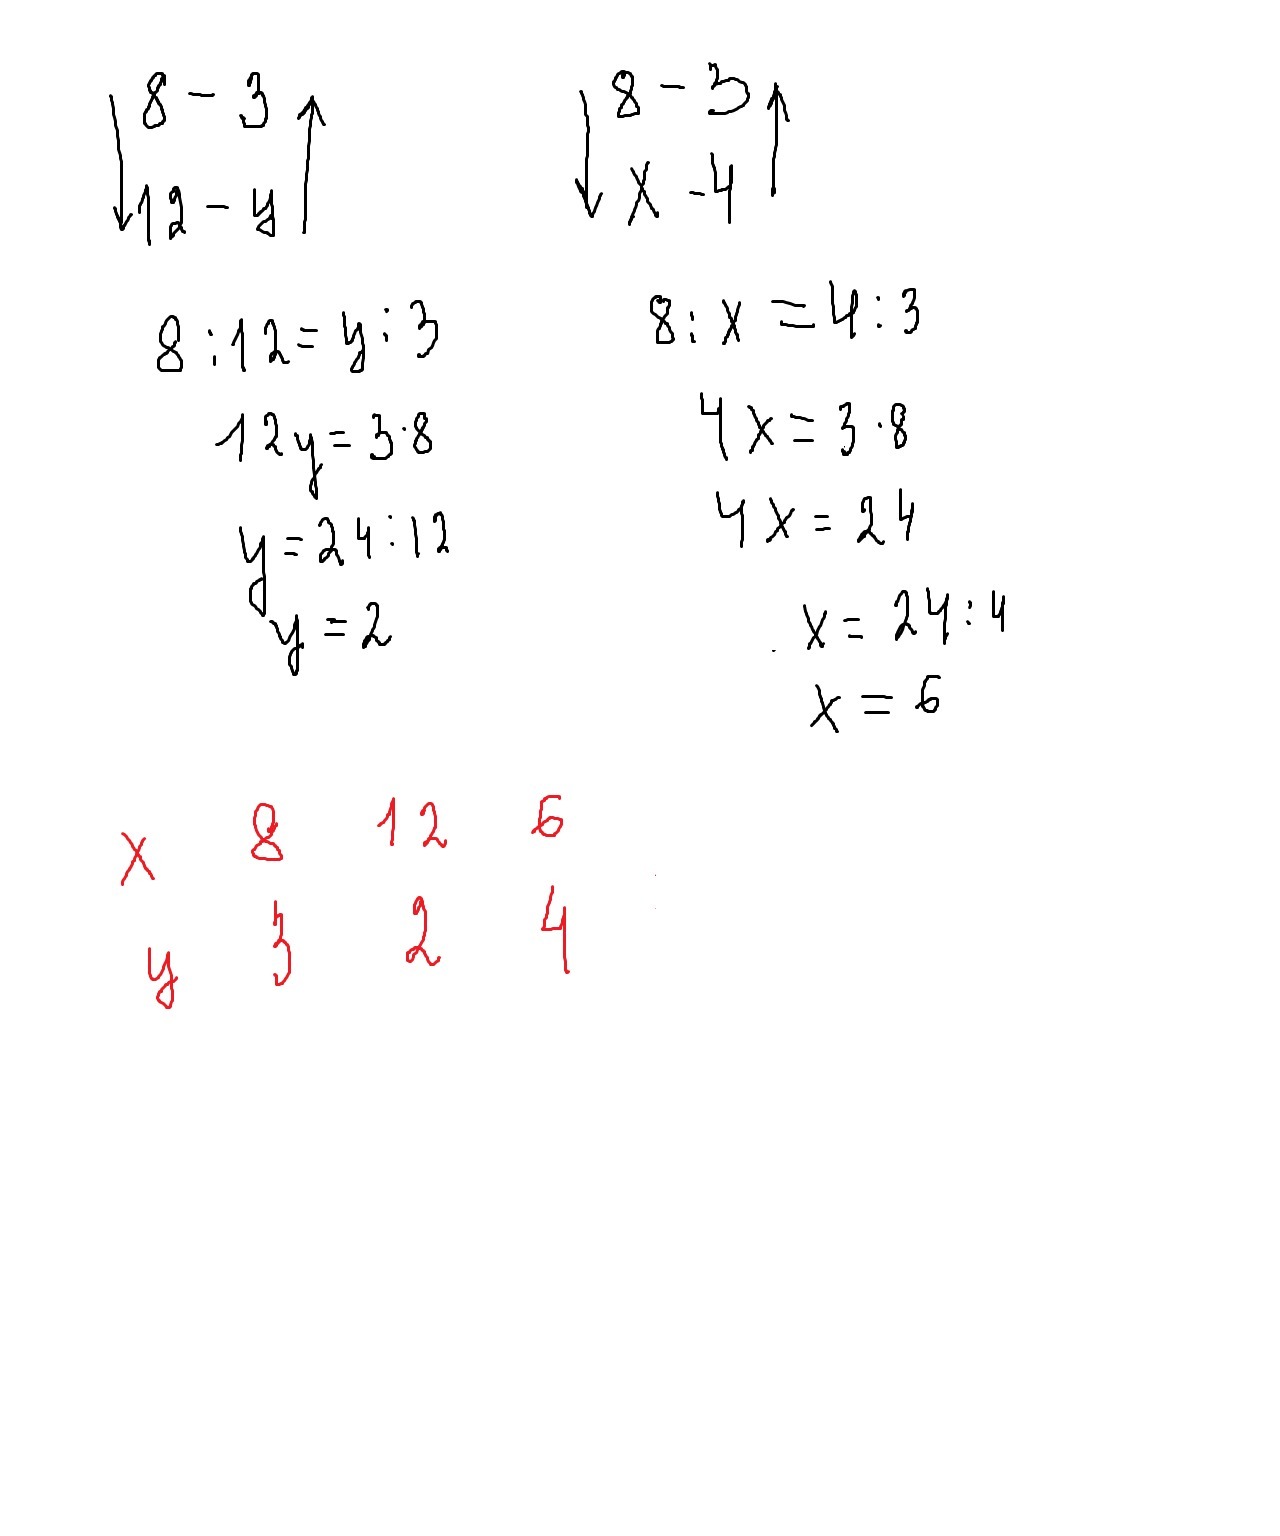 8 - 3
12 - y
8 : 12 = y : 3
12y = 3·8
y = 24 : 12
y = 2
8 - 3
x - 4
8 : x = 4 : 3
4x = 3·8
4x = 24
x = 24 : 4
x = 6
x 8 12 6
y 3 2 4